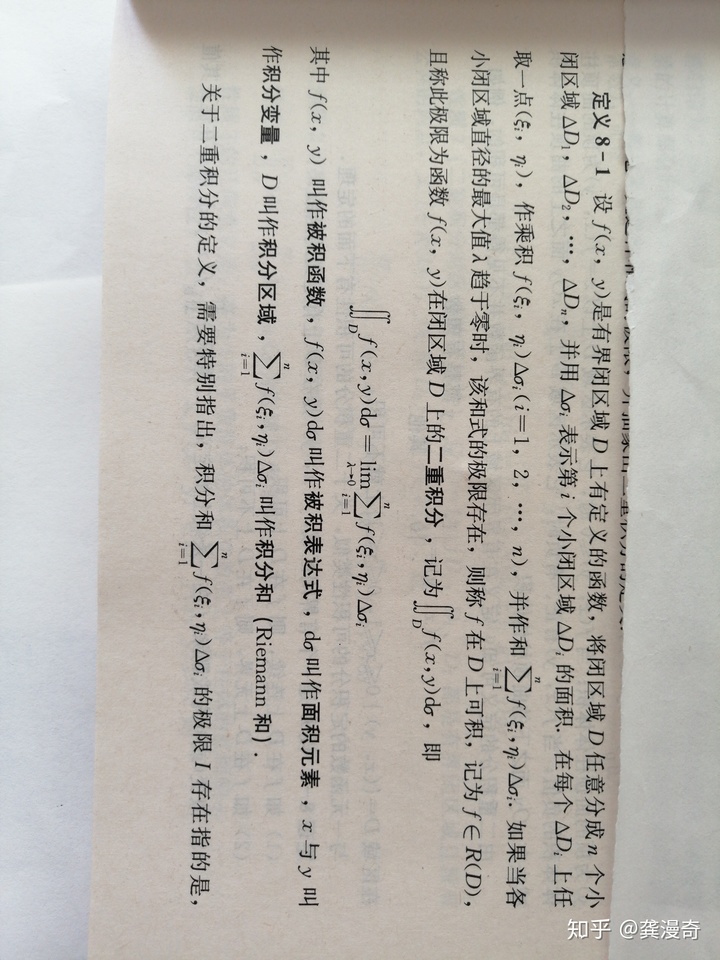 定义 8-1 设 f(x, y)是有界闭区域 D 上有定义的函数, 将闭区域 D 任意分成 n 个小
闭区域 ΔD₁, ΔD₂, …, ΔDₙ, 并用 Δσᵢ 表示第 i 个小闭区域 ΔDᵢ 的面积. 在每个 ΔDᵢ 上任
取一点(ξᵢ, ηᵢ), 作乘积 f(ξᵢ, ηᵢ)Δσᵢ(i=1, 2, …, n), 并作和 ∑ᵢ₌₁ⁿ f(ξᵢ,ηᵢ)Δσᵢ. 如果当各
小闭区域直径的最大值 λ 趋于零时, 该和式的极限存在, 则称 f 在 D 上可积, 记为 f∈R(D),
且称此极限为函数 f(x, y)在闭区域 D 上的二重积分, 记为∬_D f(x,y)dσ, 即
∬_D f(x,y)dσ = lim_{λ→0} ∑ᵢ₌₁ⁿ f(ξᵢ,ηᵢ)Δσᵢ
其中 f(x, y) 叫作被积函数, f(x, y)dσ 叫作被积表达式, dσ 叫作面积元素, x 与 y 叫
作积分变量, D 叫作积分区域, ∑ᵢ₌₁ⁿ f(ξᵢ,ηᵢ)Δσᵢ 叫作积分和 (Riemann 和).
关于二重积分的定义, 需要特别指出, 积分和 ∑ᵢ₌₁ⁿ f(ξᵢ,ηᵢ)Δσᵢ 的极限 I 存在指的是,
知乎 @龚漫奇